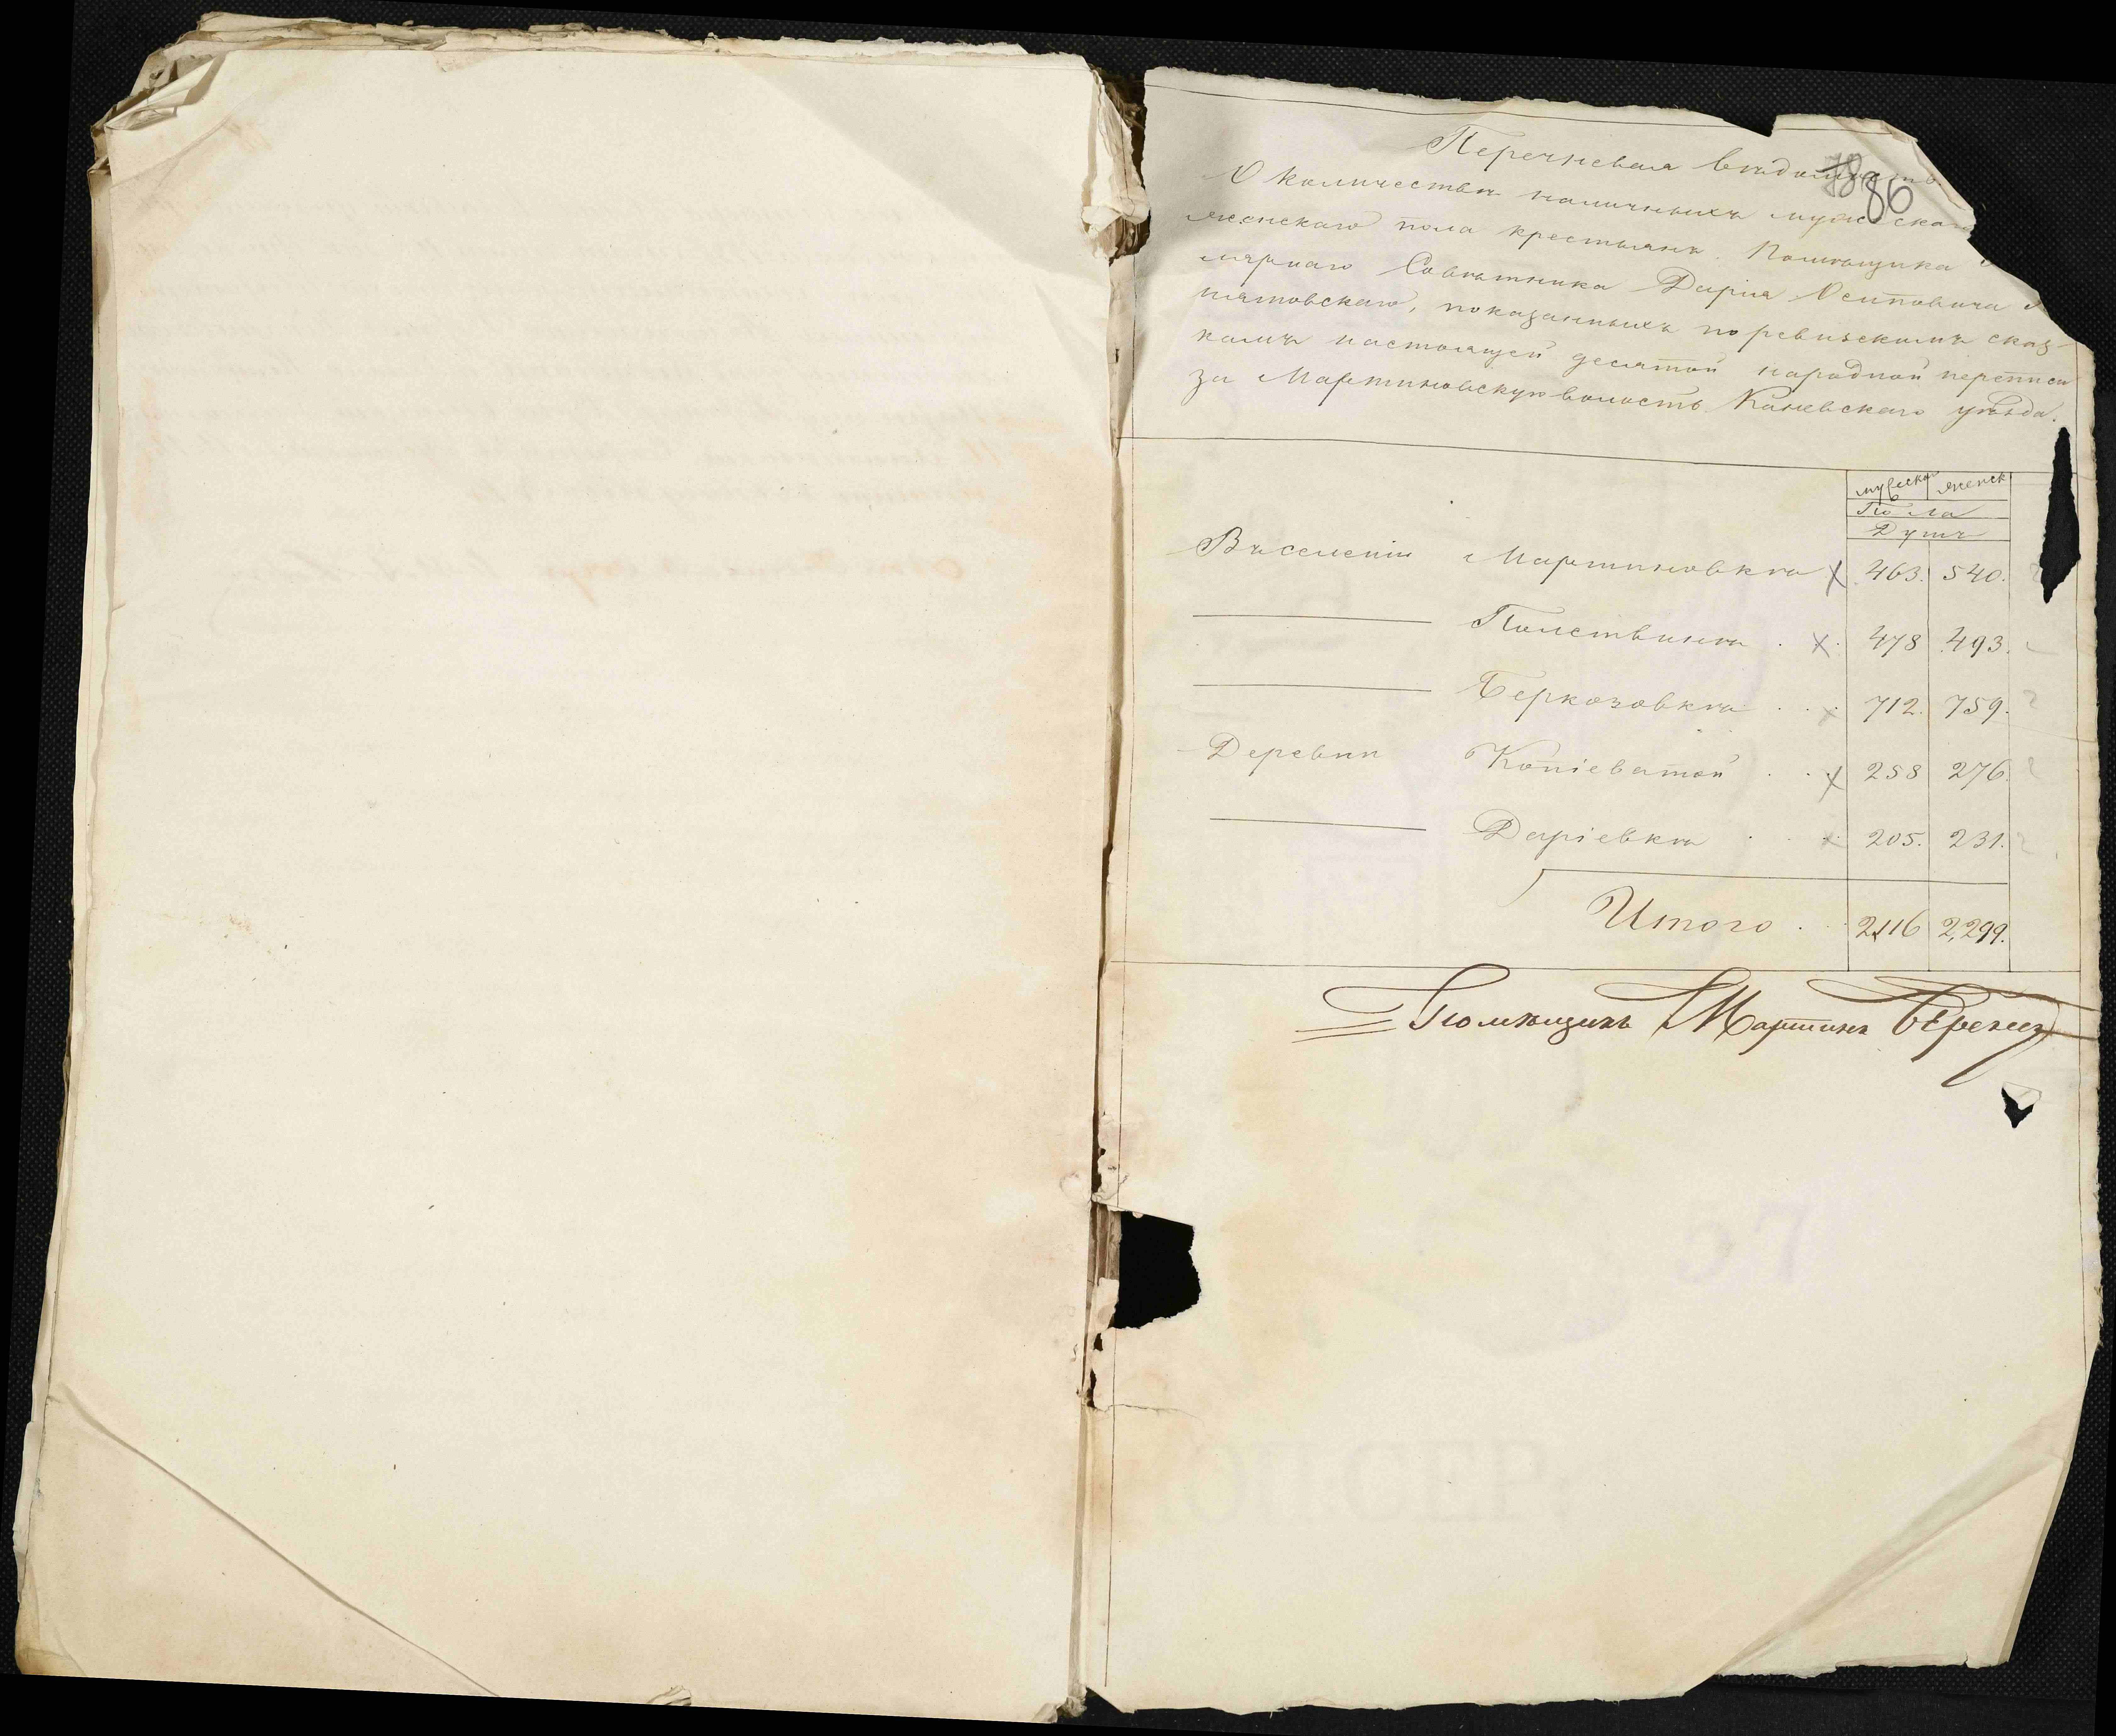 Перечневая ведомость
78 86
О количестве наличныхъ мужеска
женскаго пола крестьянъ Помещика
лярнаго Советника Дарія Осиповича
пятовскаго, показанныхъ по ревизскимъ сказ-
камъ настоящей десятой народной переписи
за Мартиновскую волость Каневскаго уезда.
мужеска женск
Пола
Душъ
Въ селеніи Мартиновке 463. 540.
Полствине 478 493.
Беркозовке 712. 759.
Деревни Копіеватой 258 276.
Даріевке 205. 231.
Итого 2116 2,299.
Помещикъ Мартинъ